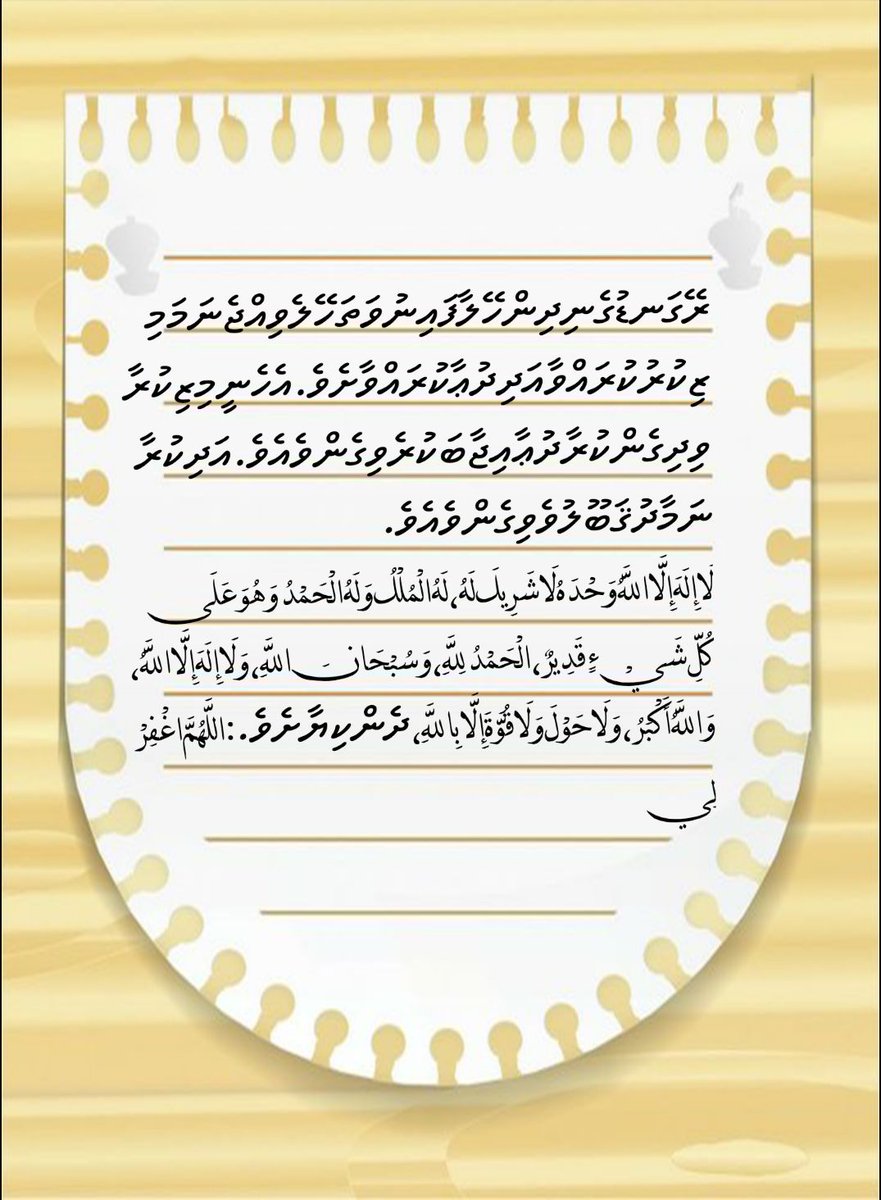 ރޭގަނޑުގެނިދިންހޭލާފައިނުވަތަހޭލެވިއްޖެނަމަމި
ޒިކުރުކުރައްވާއަދިދުޢާކުރައްވާށެވެ. އެހެނީމިޒިކުރާ
ވިދިގެންކުރާދުޢާއިޖާބަކުރެވިގެންވެއެވެ. އަދިކުރާ
ނަމާދުޤަބޫލުވެވިގެންވެއެވެ.
لَا إِلَهَ إِلَّا اللَّهُ وَحْدَهُ لَا شَرِيكَ لَهُ، لَهُ الْمُلْكُ وَلَهُ الْحَمْدُ وَهُوَ عَلَى
كُلِّ شَيْءٍ قَدِيرٌ، الْحَمْدُ لِلَّهِ، وَسُبْحَانَ اللَّهِ، وَلَا إِلَهَ إِلَّا اللَّهُ،
وَاللَّهُ أَكْبَرُ، وَلَا حَوْلَ وَلَا قُوَّةَ إِلَّا بِاللَّهِ، ދެންކިޔާށެވެ.: اللَّهُمَّ اغْفِرْ
لِي